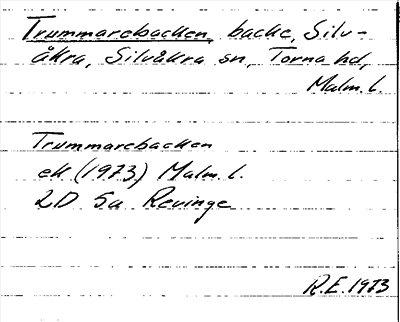 Trummarebacken, backe, Silv-
åkra, Silvåkra sn, Torna hd,
Malm. l.
Trummarebacken
ek (1973) Malm. l.
2D 5a Revinge
R.E. 1973